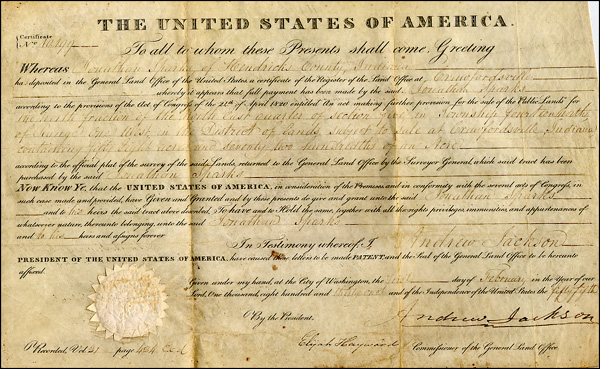 THE UNITED STATES OF AMERICA.
Certificate
No.
To all to whom these Presents shall come, Greeting
Whereas Jonathan Sparks of Hendricks County, Indiana
has deposited in the General Land Office of the United States, a certificate of the Register of the Land Office at Crawfordsville
whereby it appears that full payment has been made by the said Jonathan Sparks
according to the provisions of the Act of Congress of the 24th of April 1820 entitled An act making further provision for the sale of the Public Lands for
the fraction of the East quarter of section five in Township four
of Range One West in the District of Lands subject to sale at Crawfordsville, Indiana
containing acres and seventy two hundredths of an Acre
according to the official plat of the survey of the said Lands, returned to the General Land Office by the Surveyor General, which said tract has been
purchased by the said Jonathan Sparks
Now Know Ye, that the UNITED STATES OF AMERICA, in consideration of the Promises and in conformity with the several acts of Congress, in
such case made and provided, have Given and Granted and by these presents do give and grant unto the said Jonathan Sparks
and to his heirs the said tract above described. To have and to Hold the same, together with all the rights, privileges, immunities, and appurtenances of
whatsoever nature, thereunto belonging, unto the said Jonathan Sparks
and to his heirs and assigns forever
In Testimony whereof I, Andrew Jackson
PRESIDENT OF THE UNITED STATES OF AMERICA, have caused these letters to be made PATENT and the Seal of the General Land Office to be hereunto
affixed.
Given under my hand, at the City of Washington, the first day of February in the Year of our
Lord, One thousand, eight hundred and thirty one and of the Independence of the United States the fifty fifth
By the President. Andrew Jackson
Elijah Hayward Commissioner of the General Land Office
Recorded, Vol 21 page